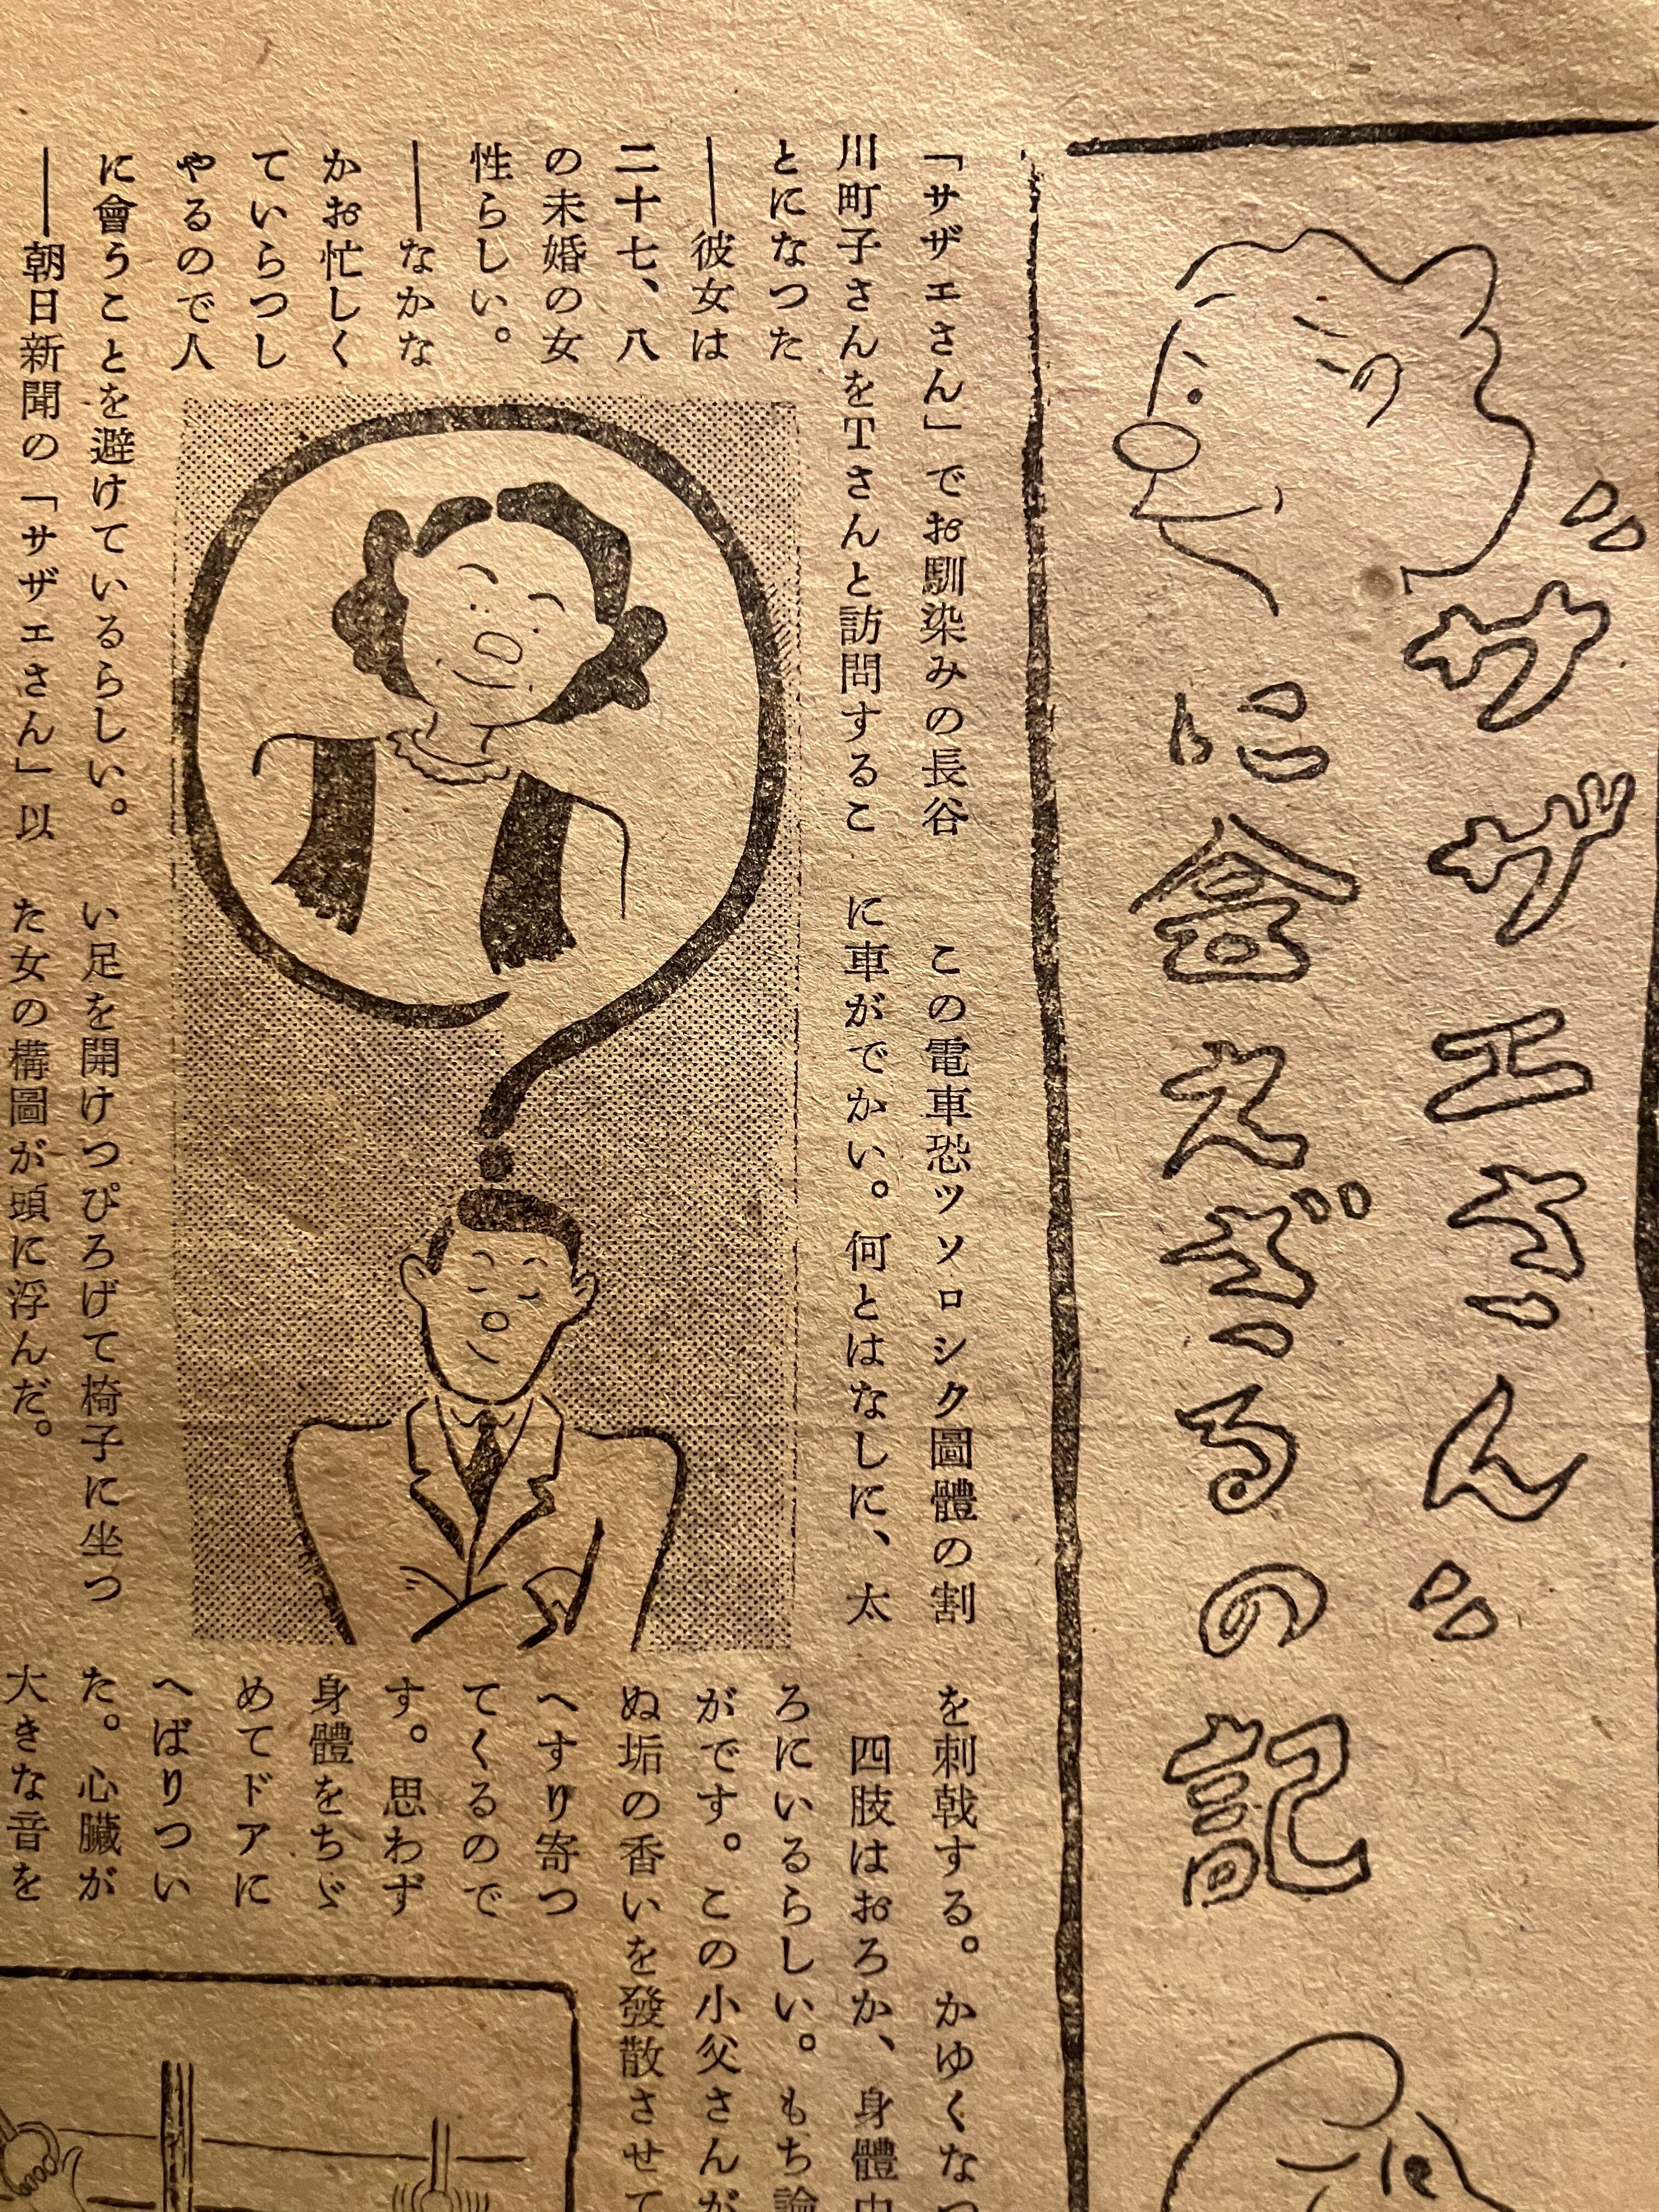 “サザエさん”
に会えざるの記
「サザエさん」でお馴染みの長谷
川町子さんをTさんと訪問するこ
とになつた
――彼女は
二十七、八
の未婚の女
性らしい。
――なかな
かお忙しく
ていらつし
やるので人
に會うことを避けているらしい。
――朝日新聞の「サザエさん」以
この電車恐ッソロシク圖體の割
に車がでかい。何とはなしに、太
い足を開けつぴろげて椅子に坐つ
た女の構圖が頭に浮んだ。
を刺戟する。かゆくなつ
四肢はおろか、身體中
ろにいるらしい。もち論
がです。この小父さんが
ぬ垢の香いを發散させて
へすり寄つ
てくるので
す。思わず
身體をちゞ
めてドアに
へばりつい
た。心臓が
大きな音を